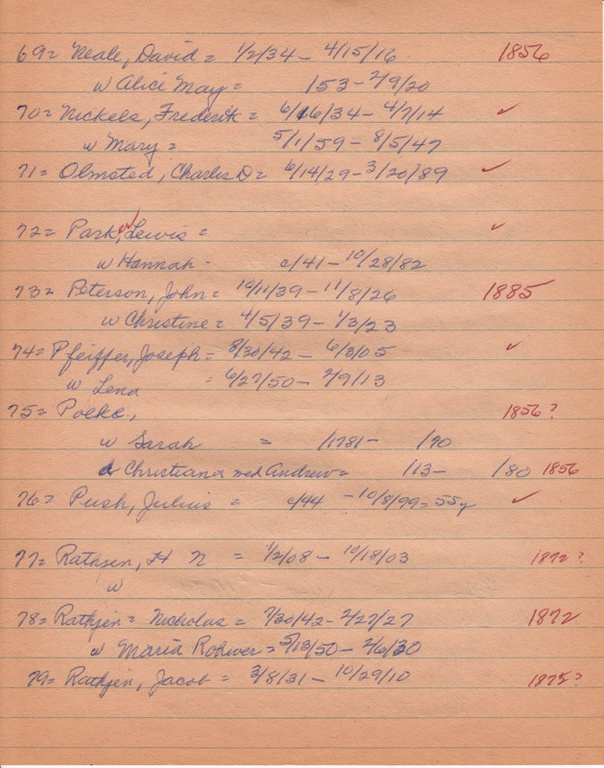 69= Neale, David = 1/2/34 - 4/15/16 1856
w Alice May = /53 - 2/9/20
70= Nickels, Frederik = 6/16/34 - 4/7/14 ✓
w Mary = 5/1/59 - 8/5/47
71= Olmsted, Charles D = 6/14/29 - 3/20/89 ✓
72= Park, Lewis = ✓
w Hannah - c/41 - 10/28/82
73= Peterson, John = 10/11/39 - 11/8/26 1885
w Christine = 4/5/39 - 1/3/23
74= Pfeiffer, Joseph = 8/30/42 - 6/3/05 ✓
w Lena = 6/27/50 - 2/9/13
75= Poelke, 1856?
w Sarah = /1781 - /70
d Christiana med Andrew = /13 - /80 1856
76= Push, Julius = c/44 - 10/8/99 = 55y ✓
77= Rathjen, H N = 1/2/08 - 10/18/03 1872?
w
78= Rathjen = Nicholas = 7/30/42 - 2/27/27 1872
w Maria Rohwer = 5/13/50 - 2/6/30
79= Rathjen, Jacob = 3/8/31 - 10/29/10 1875?